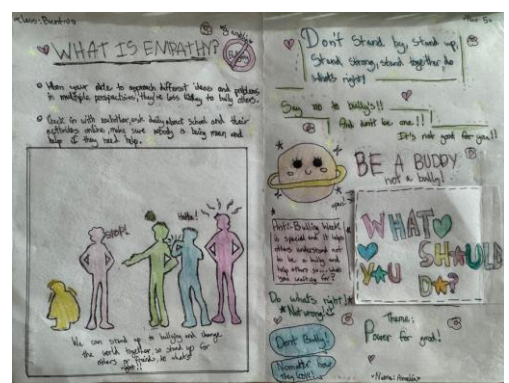 WHAT IS EMPATHY?
When your able to approach different ideas and problems
in multiple perspectives, they're less likely to bully others.
Check in with ask daily about school and their
activities online, make sure nobody is being mean and
help if they need help.
STOP!
Haha!
We can stand up to bullying and change
the world together, so stand up for
others or friends, do what's
right!!
Don't Stand by, stand up,
Stand strong, stand together, do
What's right!
Say no to bully's!!
And don't be one!!
It's not good for you!!
BE A BUDDY
not a bully!
Anti-Bullying Week
is special and it helps
others understand not
to be a bully and
help others so... what's
you waiting for?
WHAT
SHOULD
YOU
DO?
Do what's right!
*Not wrong!
Don't Bully!
No matter how
they look!
Theme:
Power for good!